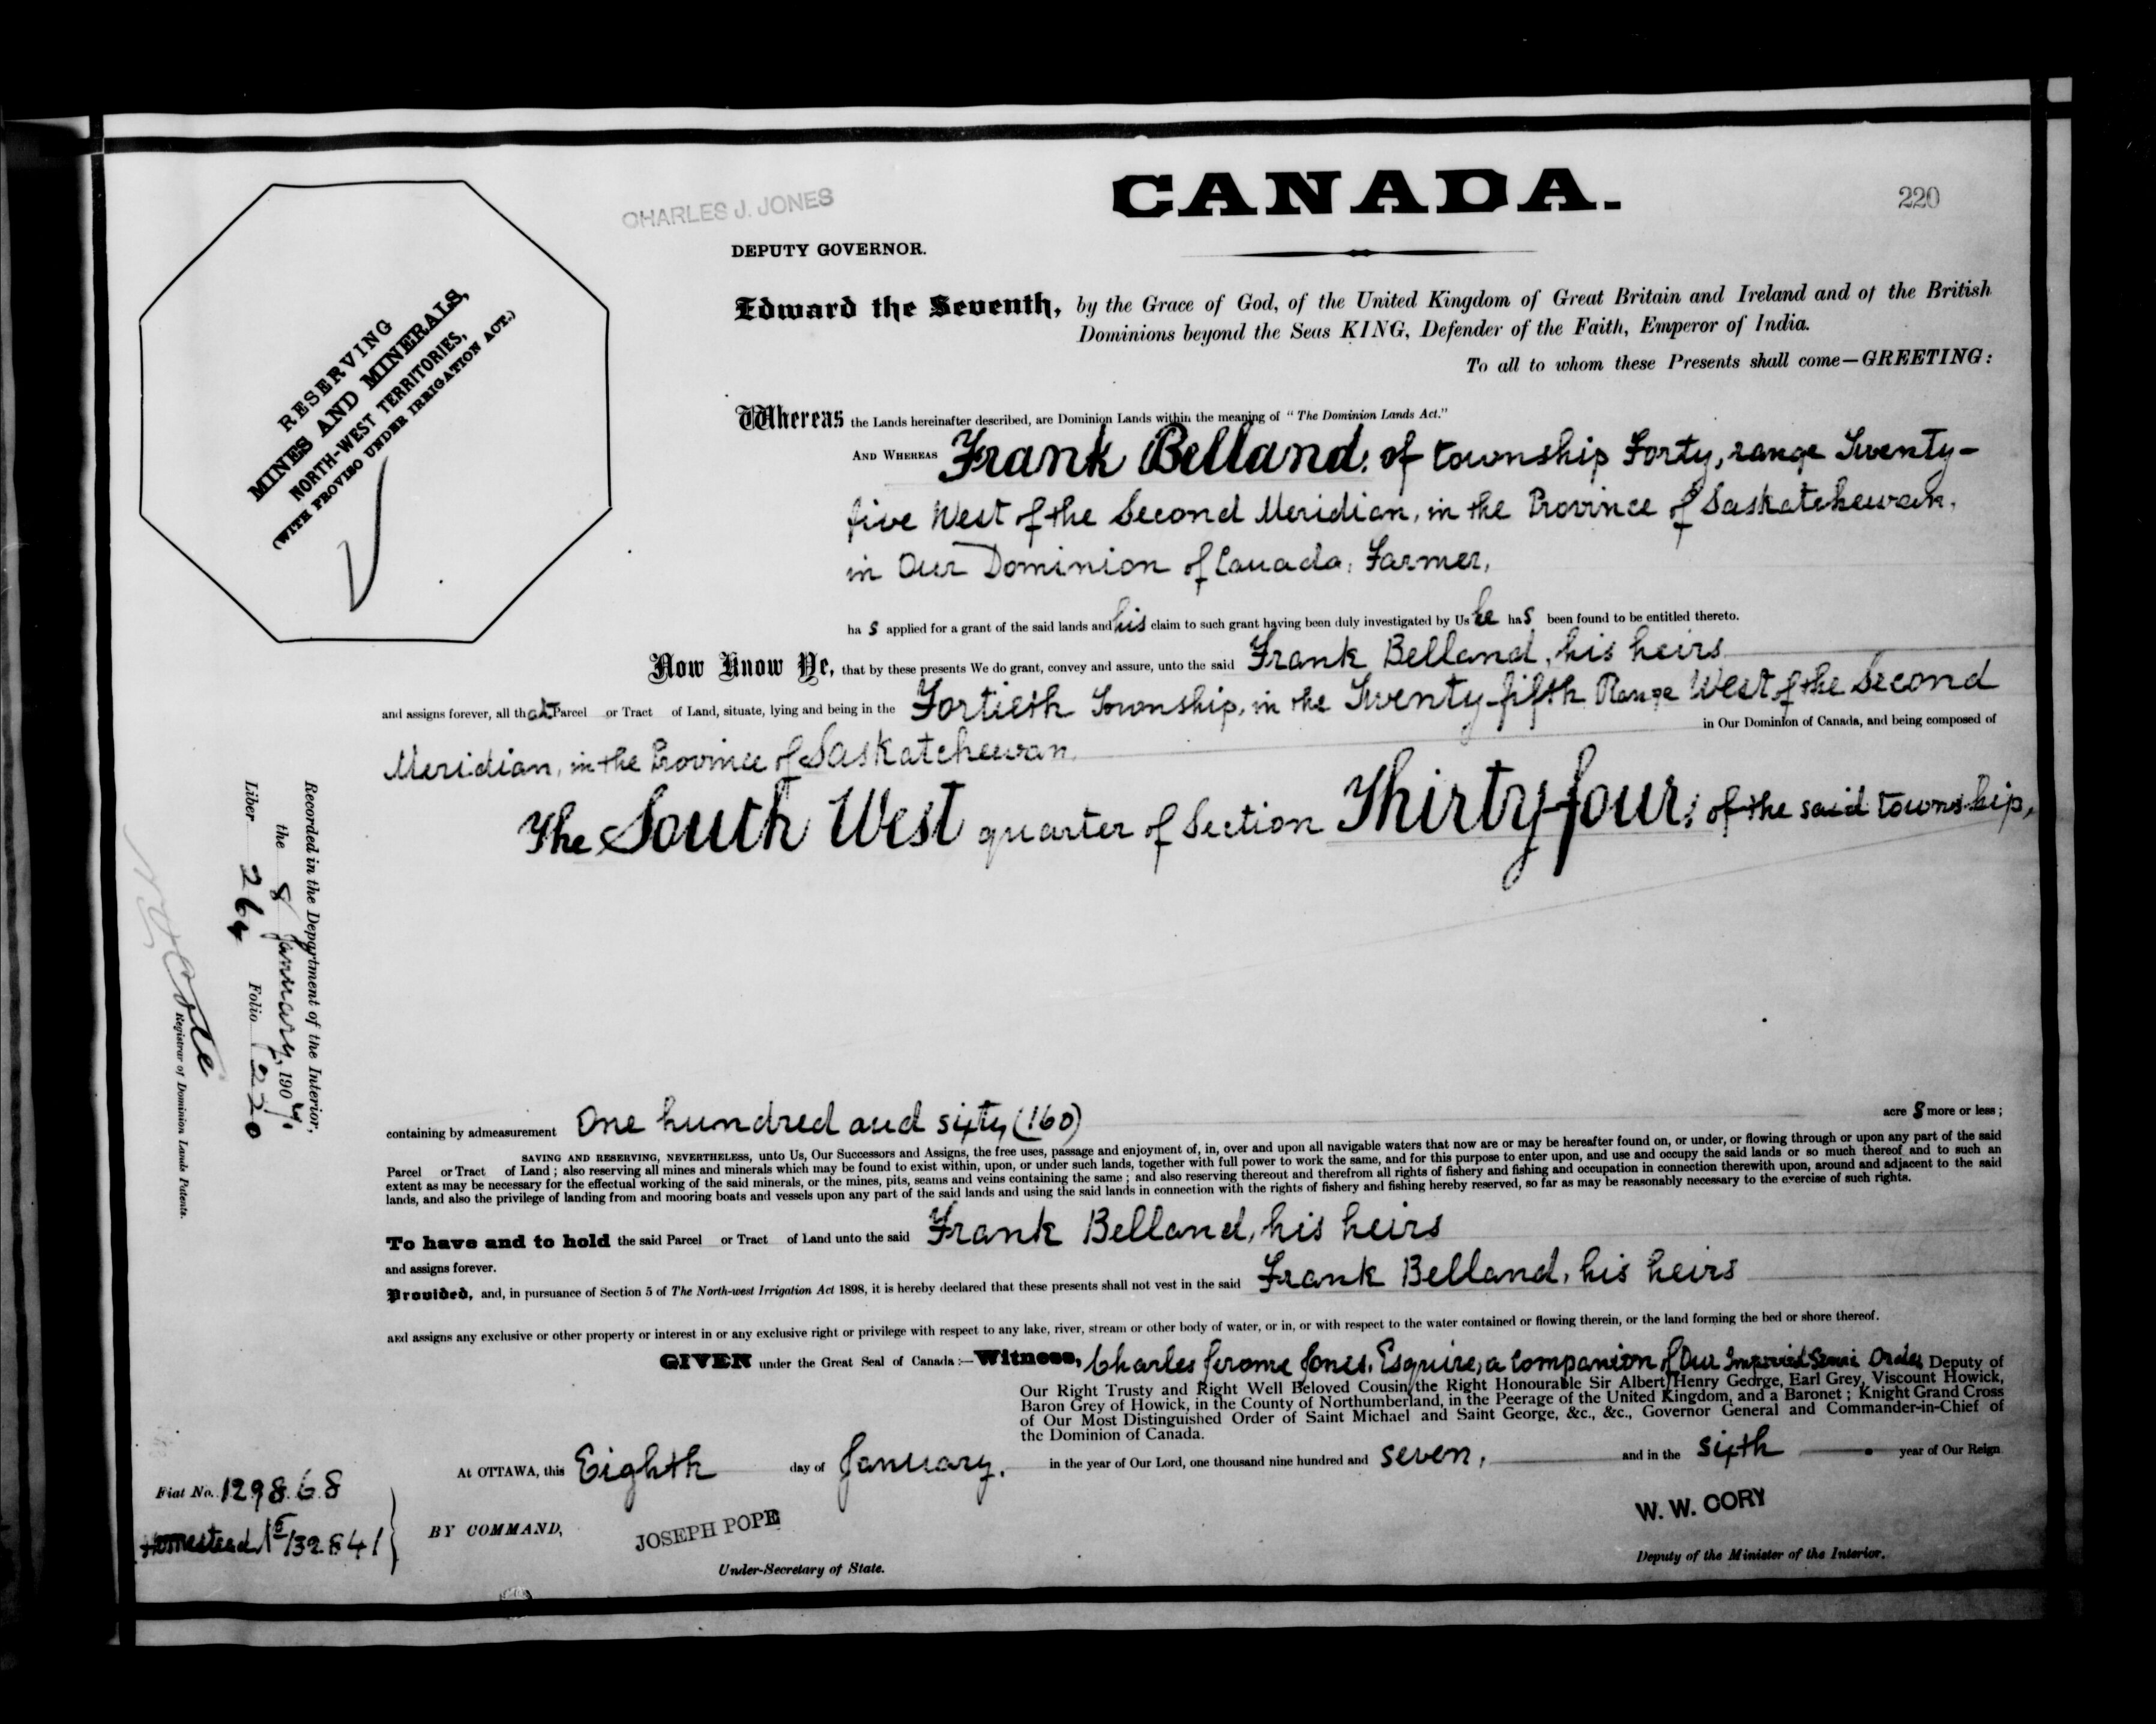 CANADA.
220
CHARLES J. JONES
DEPUTY GOVERNOR.
RESERVING
MINES AND MINERALS,
NORTH-WEST TERRITORIES,
(WITH PROVISO UNDER IRRIGATION ACT.)
Edward the Seventh, by the Grace of God, of the United Kingdom of Great Britain and Ireland and of the British
Dominions beyond the Seas KING, Defender of the Faith, Emperor of India.
To all to whom these Presents shall come—GREETING:
Whereas the Lands hereinafter described, are Dominion Lands within the meaning of "The Dominion Lands Act."
AND WHEREAS Frank Belland, of township Forty, range Twenty-
five West of the Second Meridian, in the Province of Saskatchewan,
in Our Dominion of Canada, Farmer,
ha s applied for a grant of the said lands and his claim to such grant having been duly investigated by Us he has been found to be entitled thereto.
Now Know Ye, that by these presents We do grant, convey and assure, unto the said Frank Belland, his heirs
and assigns forever, all that Parcel or Tract of Land, situate, lying and being in the Fortieth Township, in the Twenty-fifth Range West of the Second
in Our Dominion of Canada, and being composed of
Meridian, in the Province of Saskatchewan,
The South West quarter of Section Thirty-four, of the said township,
Recorded in the Department of the Interior,
the 8 January, 1907,
Liber 264 Folio 220
Registrar of Dominion Lands Patents.
containing by admeasurement One hundred and sixty (160) acre s more or less;
SAVING AND RESERVING, NEVERTHELESS, unto Us, Our Successors and Assigns, the free uses, passage and enjoyment of, in, over and upon all navigable waters that now are or may be hereafter found on, or under, or flowing through or upon any part of the said
Parcel or Tract of Land; also reserving all mines and minerals which may be found to exist within, upon, or under such lands, together with full power to work the same, and for this purpose to enter upon, and use and occupy the said lands or so much thereof and to such an
extent as may be necessary for the effectual working of the said minerals, or the mines, pits, seams and veins containing the same; and also reserving thereout and therefrom all rights of fishery and fishing and occupation in connection therewith upon, around and adjacent to the said
lands, and also the privilege of landing from and mooring boats and vessels upon any part of the said lands and using the said lands in connection with the rights of fishery and fishing hereby reserved, so far as may be reasonably necessary to the exercise of such rights.
To have and to hold the said Parcel or Tract of Land unto the said Frank Belland, his heirs
and assigns forever.
Provided, and, in pursuance of Section 5 of The North-west Irrigation Act 1898, it is hereby declared that these presents shall not vest in the said Frank Belland, his heirs
and assigns any exclusive or other property or interest in or any exclusive right or privilege with respect to any lake, river, stream or other body of water, or in, or with respect to the water contained or flowing therein, or the land forming the bed or shore thereof.
GIVEN under the Great Seal of Canada:—Witness, Charles Jerome Jones, Esquire, a Companion of Our Imperial Service Order Deputy of
Our Right Trusty and Right Well Beloved Cousin, the Right Honourable Sir Albert Henry George, Earl Grey, Viscount Howick,
Baron Grey of Howick, in the County of Northumberland, in the Peerage of the United Kingdom, and a Baronet; Knight Grand Cross
of Our Most Distinguished Order of Saint Michael and Saint George, &c., &c., Governor General and Commander-in-Chief of
the Dominion of Canada.
At OTTAWA, this Eighth day of January, in the year of Our Lord, one thousand nine hundred and seven, and in the sixth year of Our Reign
Fiat No. 129868
Homestead
BY COMMAND,
JOSEPH POPE
Under-Secretary of State.
W. W. CORY
Deputy of the Minister of the Interior.